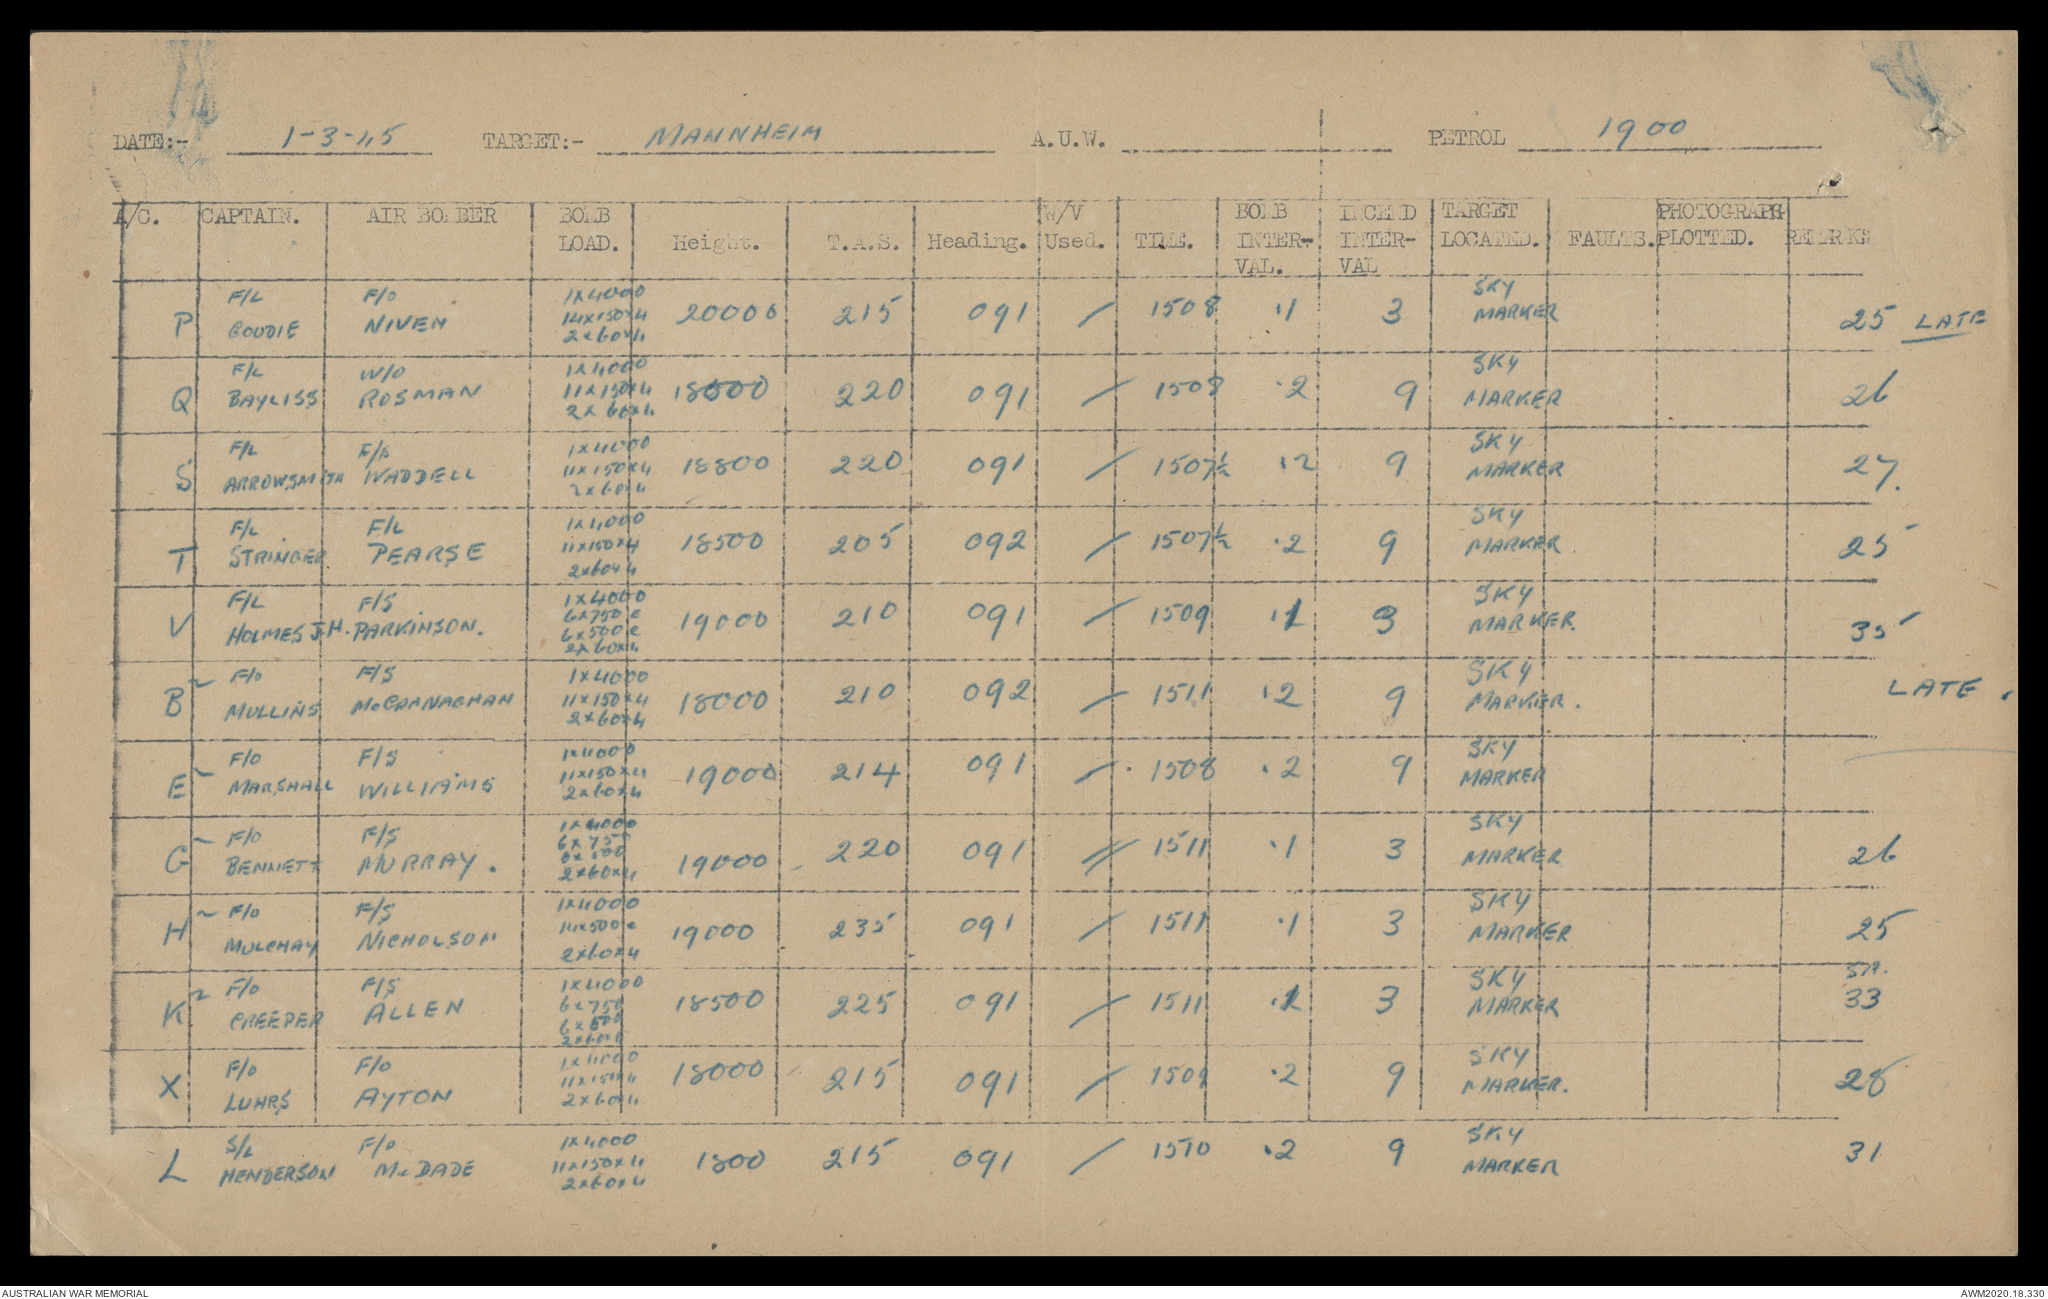 DATE:- 1-3-45 TARGET:- MANNHEIM A.U.W. PETROL 1900
A/C. CAPTAIN. AIR BOMBER BOMB LOAD. Height. T.A.S. Heading. W/V Used. TIME. BOMB INTER-VAL. INCEND INTER-VAL TARGET LOCATED. FAULTS. PHOTOGRAPH PLOTTED. REMARKS
P F/L GOUDIE F/O NIVEN 1x4000 14x150x4 2x60x4 20000 215 091 / 1508 .1 3 SKY MARKER 25 LATE
Q F/L BAYLISS W/O ROSMAN 1x4000 11x150x4 2x60x4 18500 220 091 / 1508 .2 9 SKY MARKER 26
S F/L ARROWSMITH F/O WADDELL 1x4000 11x150x4 2x60x4 18800 220 091 / 1507½ .2 9 SKY MARKER 27.
T F/L STRINGER F/L PEARSE 1x4000 11x150x4 2x60x4 18500 205 092 / 1507½ .2 9 SKY MARKER 25
V F/L HOLMES J.H. F/S PARKINSON. 1x4000 6x750 e 6x500 e 2x60x4 19000 210 091 / 1509 .1 3 SKY MARKER. 35
B2 F/O MULLINS F/S McCANNAGHAN 1x4000 11x150x4 2x60x4 18000 210 092 / 1511 .2 9 SKY MARKER. LATE.
E2 F/O MARSHALL F/S WILLIAMS 1x4000 11x150x4 2x60x4 19000 214 091 / 1508 .2 9 SKY MARKER
G2 F/O BENNETT F/S MURRAY. 1x4000 6x750 6x500 2x60x4 19000 220 091 / 1511 .1 3 SKY MARKER 26
H2 F/O MULCHAY F/S NICHOLSON 1x4000 14x500 e 2x60x4 19000 235 091 / 1511 .1 3 SKY MARKER 25
K2 F/O CREEPER F/S ALLEN 1x4000 6x750 6x500 2x60x4 18500 225 091 / 1511 .1 3 SKY MARKER 33
X F/O LUHRS F/O AYTON 1x4000 11x150x4 2x60x4 18000 215 091 / 1509 .2 9 SKY MARKER. 28
L S/L HENDERSON F/O McDADE 1x4000 11x150x4 2x60x4 1800 215 091 / 1510 .2 9 SKY MARKER 31
AUSTRALIAN WAR MEMORIAL AWM2020.18.330